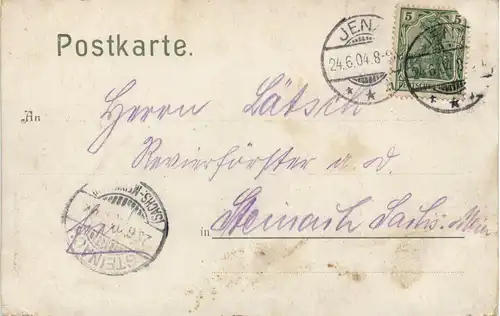 Postkarte.
JENA
24.6.04.8-9
5 5
An Herrn Lätsch
Revierförster a. D.
in Steinach Sachs. Mein
STEINACH
(SACHS.-MEIN
24.6.